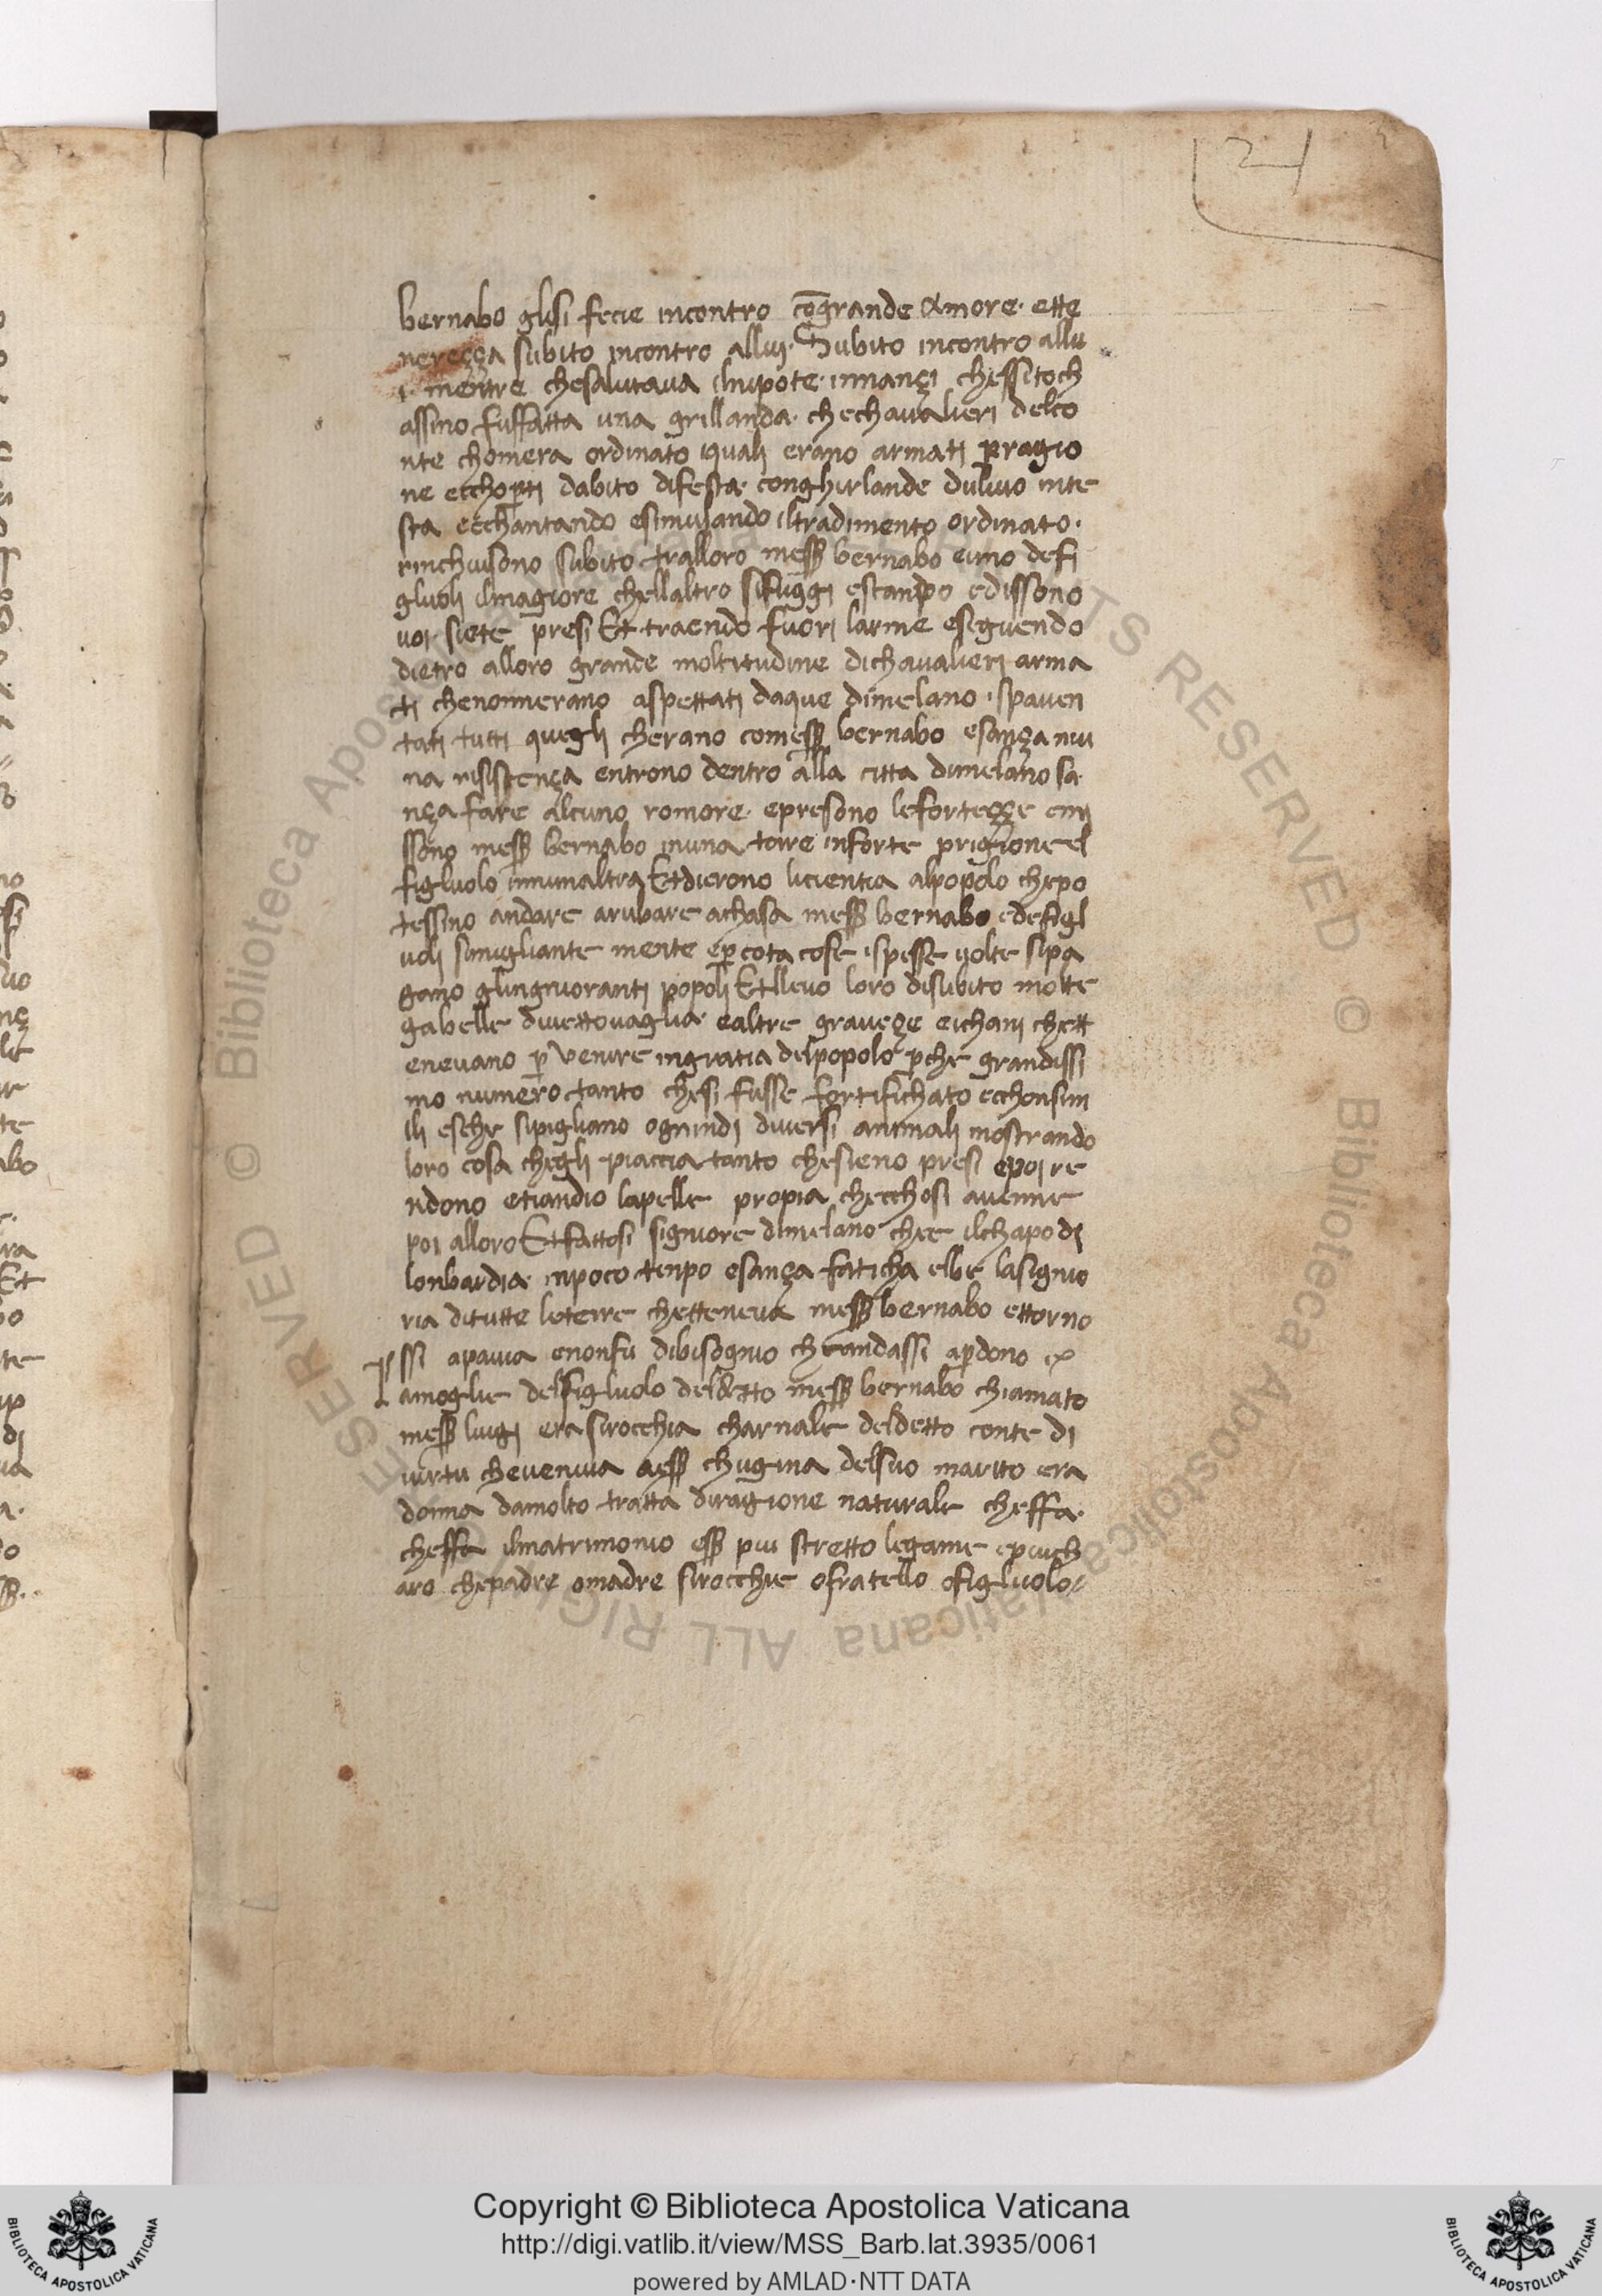 21
bernabo glisi fecie incontro cōgrande Amore· ette
nereçça subito incontro alluj· Subito incontro allu
i· mentre chesalutaua ilnipote· innançi chessitoch
assino fuffatta una grillanda· chechaualieri delco
nte chomera ordinato iquali erano armati pragio
ne ecchop̄ti dabito difesta· conghirlande duliuo inte
sta ecchantando esimulando iltradimento ordinato·
rinchiusono subito tralloro mess̄ bernabo euno defi
gluoli ilmagiore chellaltro sifuggi escanpo edissono
uoi siete presi Et traendo fuori larme eseguendo
dietro alloro grande moltitudine dichaualieri arma
ti chenonnerano aspettati daque dimelano ispauen
tati tutti quegli cherano comess̄ bernabo esança niu
na risistença entrono dentro alla citta dimelano sa
nça fare alcuno romore· epresono leforteççe emi
ssono mess̄ bernabo inuna torre inforte prigione el
figluolo innunaltra Etdierono licientia alpopolo chepo
tessino andare arubare achasa mess̄ bernabo edefigl
uoli simigliante mente ep̄ cota cose ispesse uolte sipa
gano glingnioranti popoli Etlleuo loro disubito molte
gabelle diuettouaglia· ealtre graueçe eichani chett
eneuano p̄ venire ingratia delpopolo p̄che grandissi
mo numero tanto chesi fusse fortifichato ecchonsim
ili esche sipigliano ognindi diuersi animali mostrando
loro cosa chegli piaccia tanto chesieno presi epoi re
ndono etiandio lapelle propia checchosi auenne
poi alloro Etfattosi signiore dimelano chee ilchapo di
lonbardia· inpoco tenpo esança faticha ebbe lasignio
ria ditutte leterre chetteneua mess̄ bernabo ettorno
ssi apauia enonfu dibisognio chrandassi ap̄dono
Lamoglie delfigluolo deldetto mess̄ bernabo chiamato
mess̄ luigi era sirocchia charnale deldetto conte di
uirtu cheueniua aess̄ chugina delsuo marito era
donna damolto tratta diragione naturale cheffa·
cheffa ilmatrimonio ess̄ piu stretto legame epiuch
aro chepadre omadre sirocchie ofratello ofigluolo
© Biblioteca Apostolica Vaticana ALL RIGHTS RESERVED © Biblioteca Apostolica Vaticana ALL RIGHTS RESERVED
Copyright © Biblioteca Apostolica Vaticana
http://digi.vatlib.it/view/MSS_Barb.lat.3935/0061
powered by AMLAD·NTT DATA
BIBLIOTECA APOSTOLICA VATICANA
BIBLIOTECA APOSTOLICA VATICANA